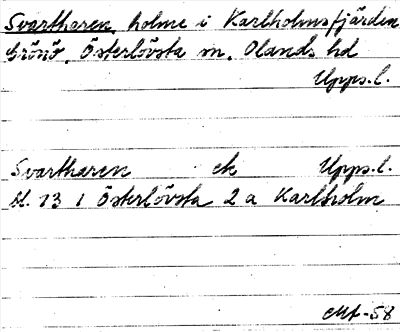 Svartharen, holme i Karlholmsfjärden
Grönö, Österlövsta sn, Olands hd
Upps.l.
Svartharen ek Upps.l.
bl. 13 I Österlövsta 2 a Karlholm
-58